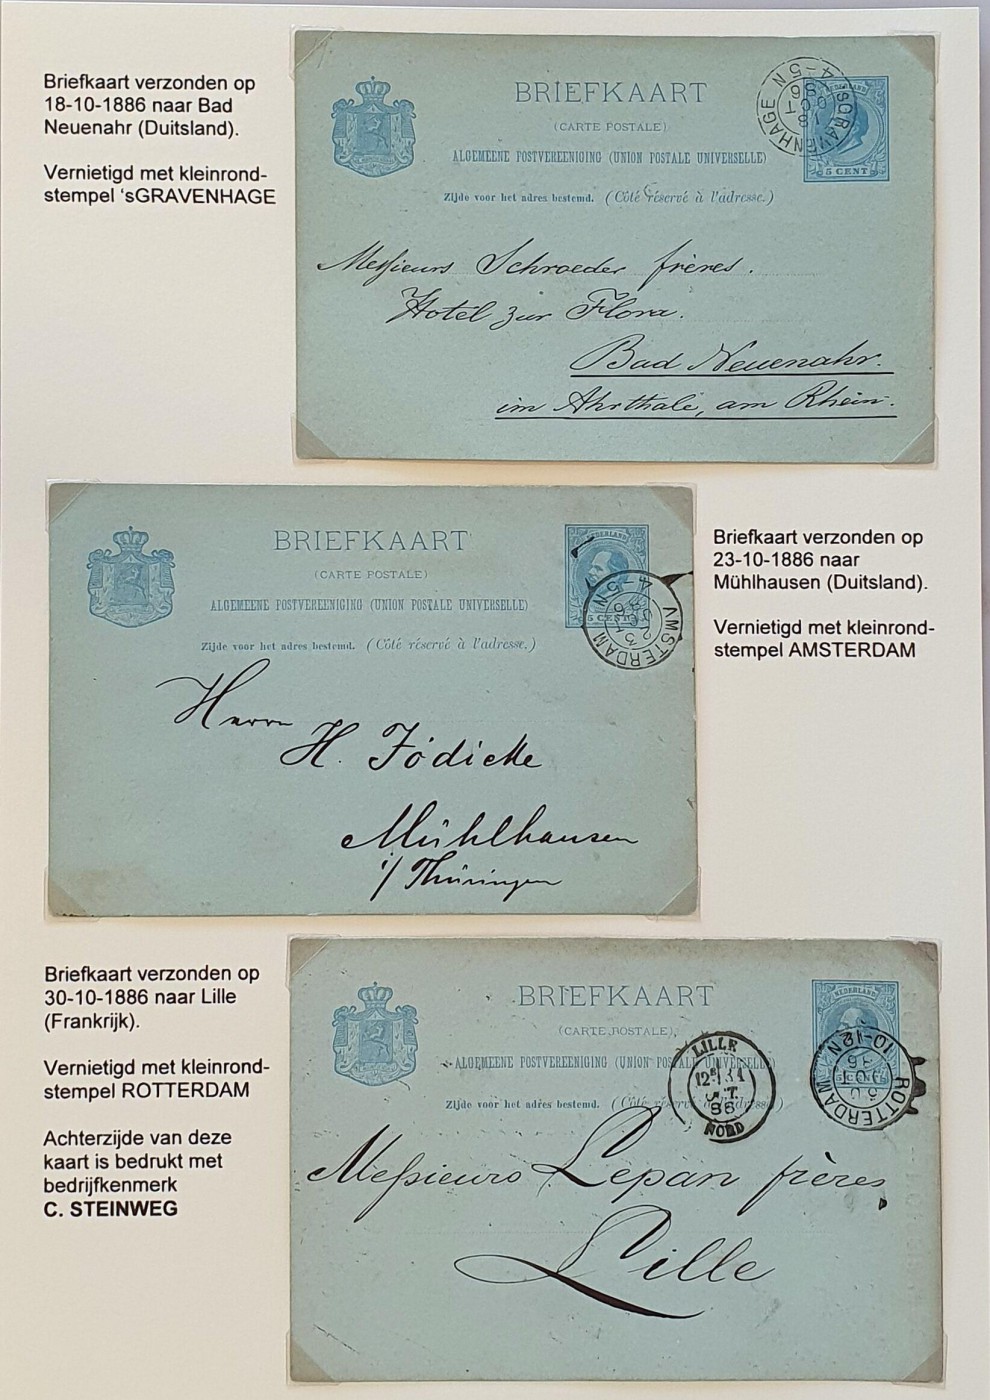 Briefkaart verzonden op
18-10-1886 naar Bad
Neuenahr (Duitsland).
Vernietigd met kleinrond-
stempel 'sGRAVENHAGE
BRIEFKAART
(CARTE POSTALE)
ALGEMEENE POSTVEREENIGING (UNION POSTALE UNIVERSELLE)
Zijde voor het adres bestemd. (Côté réservé à l'adresse.)
NEDERLAND
5 CENT
'SGRAVENHAGE
4-5 N
18
OCT
86
Messieurs Schroeder frères.
Hotel zur Flora.
Bad Neuenahr.
im Ahrthale, am Rhein.
BRIEFKAART
(CARTE POSTALE)
ALGEMEENE POSTVEREENIGING (UNION POSTALE UNIVERSELLE)
Zijde voor het adres bestemd. (Côté réservé à l'adresse.)
NEDERLAND
5 CENT
AMSTERDAM
4-5 N
23
OCT
86
Herrn
H. Jödicke
Mühlhausen
i/ Thüringen
Briefkaart verzonden op
23-10-1886 naar
Mühlhausen (Duitsland).
Vernietigd met kleinrond-
stempel AMSTERDAM
Briefkaart verzonden op
30-10-1886 naar Lille
(Frankrijk).
Vernietigd met kleinrond-
stempel ROTTERDAM
Achterzijde van deze
kaart is bedrukt met
bedrijfkenmerk
C. STEINWEG
BRIEFKAART
(CARTE POSTALE)
ALGEMEENE POSTVEREENIGING (UNION POSTALE UNIVERSELLE)
Zijde voor het adres bestemd. (Côté réservé à l'adresse.)
NEDERLAND
ROTTERDAM
10-12 N
30
OCT
86
LILLE
31
OCT.
86
NORD
Messieurs Lepan frères
Lille